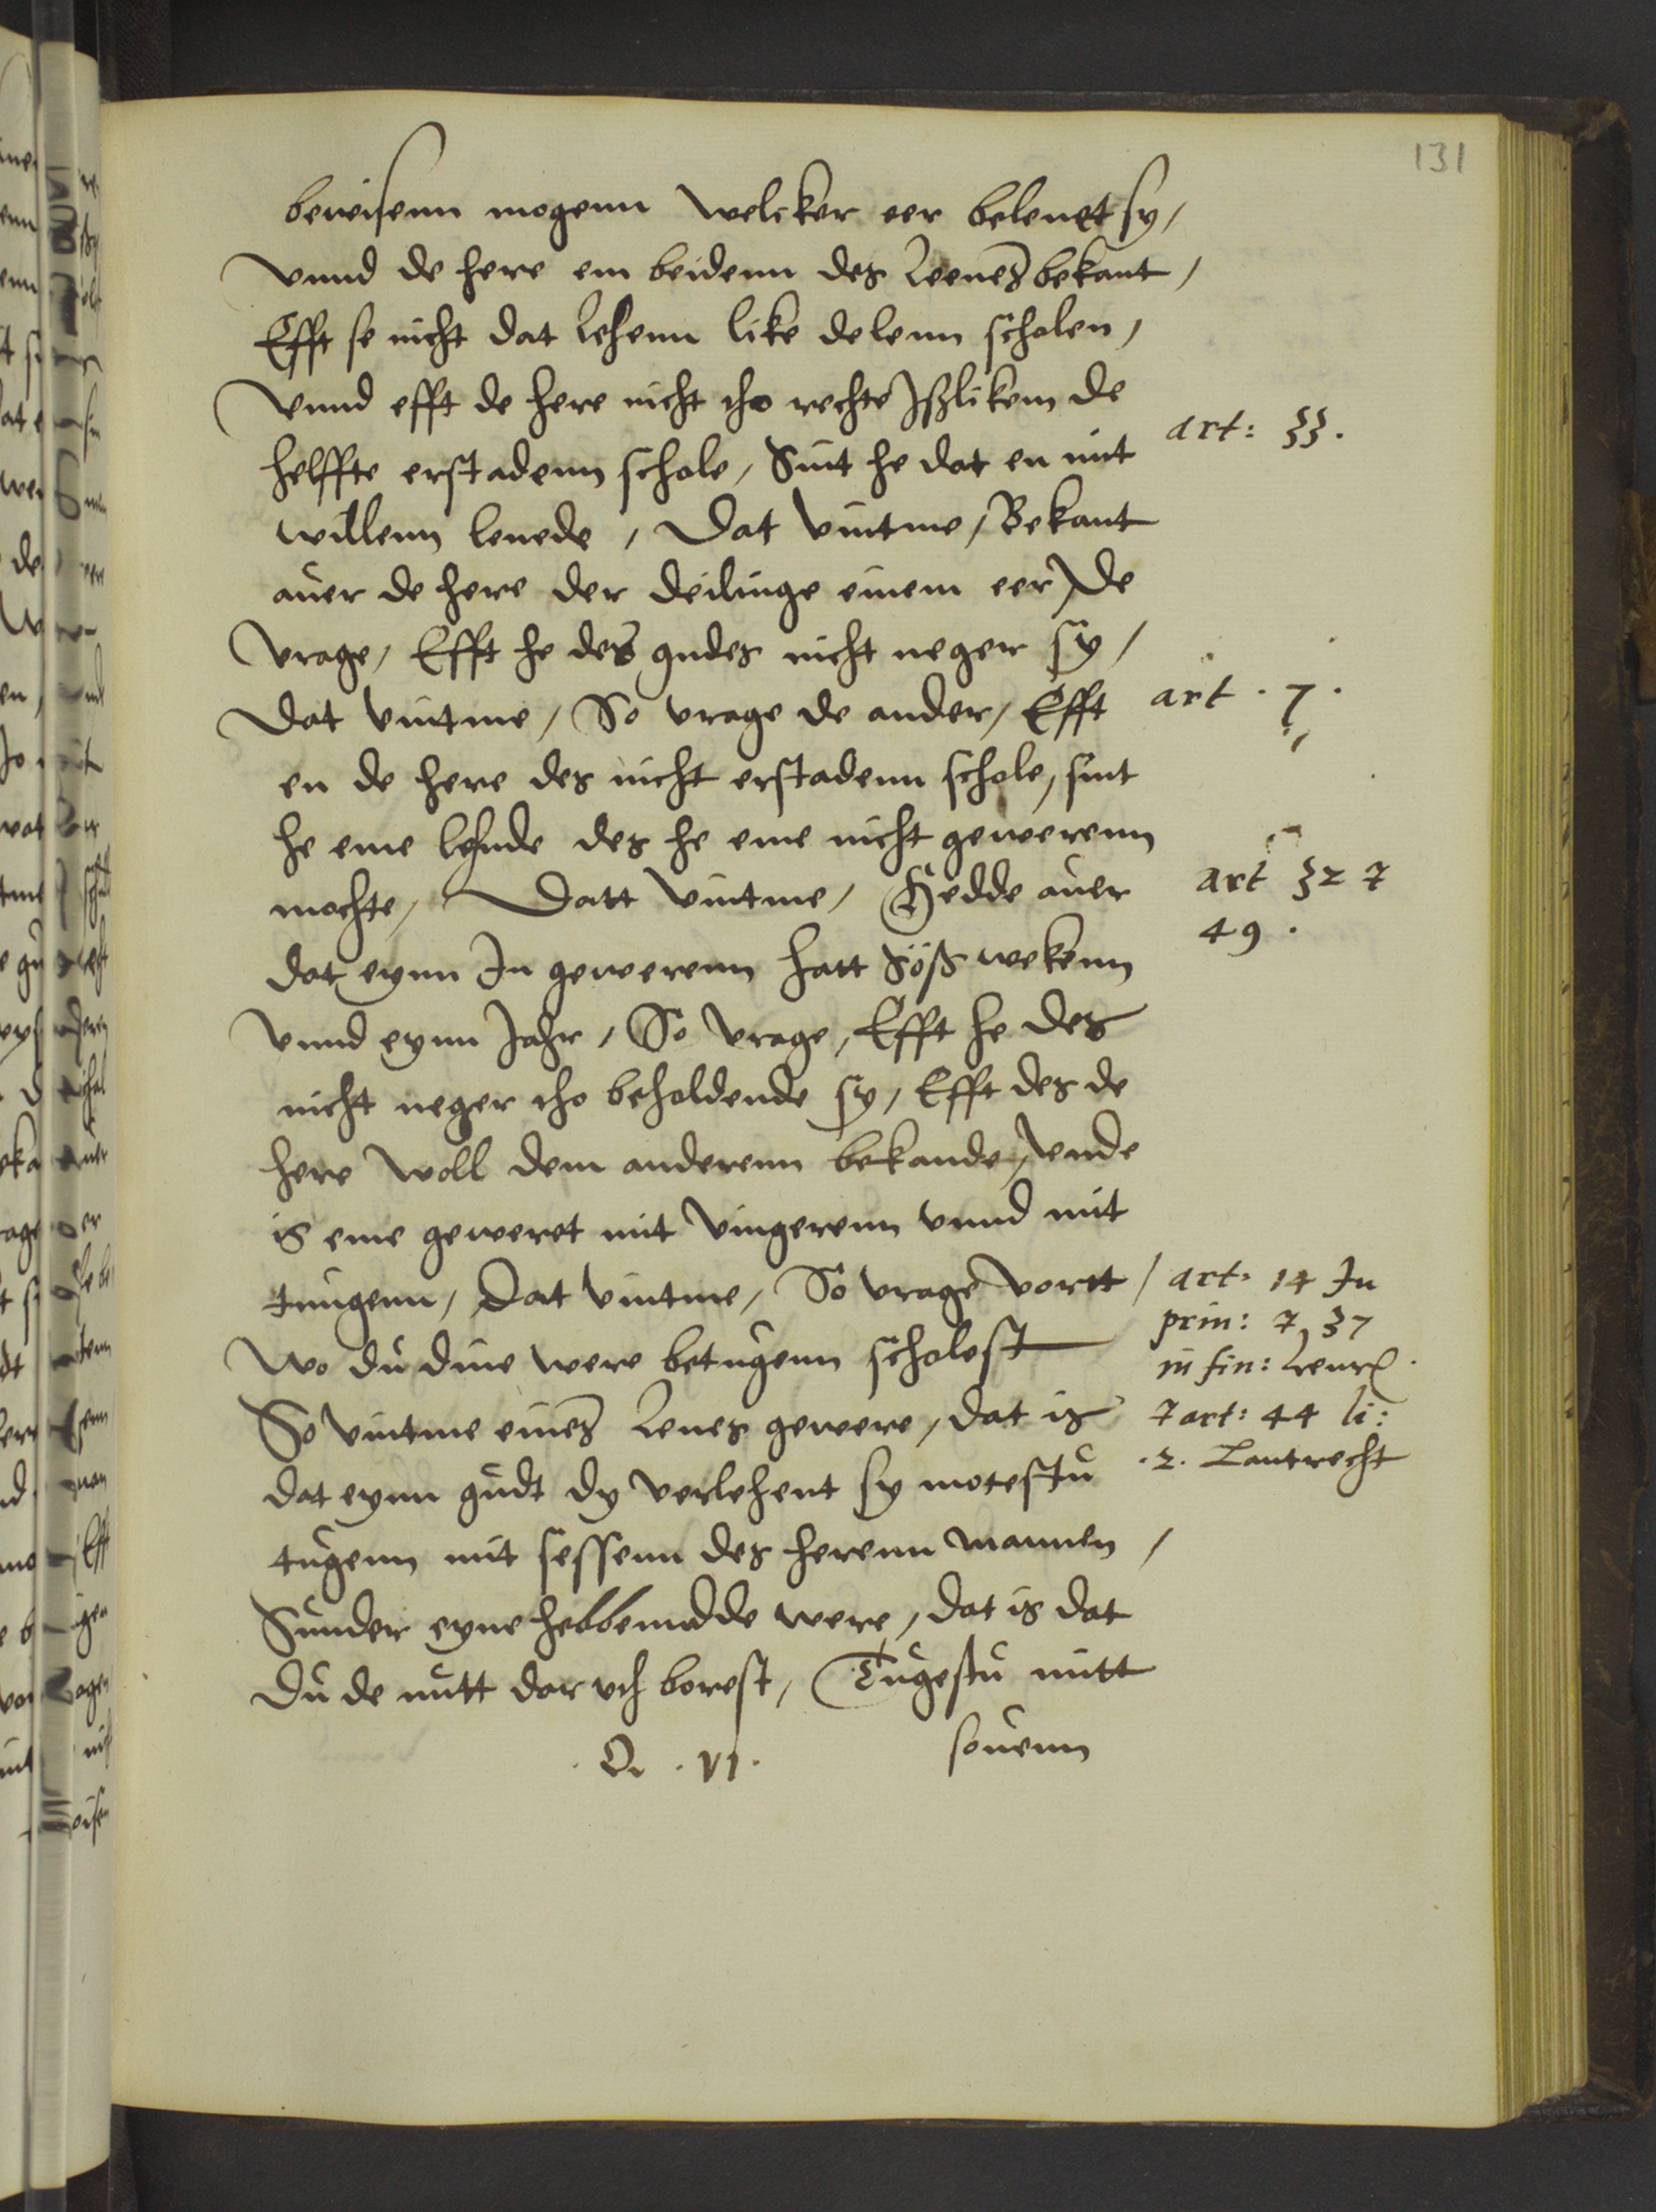 131
bewisenn mogenn welcker eer belenet sy /
vnnd de here em beidenn des Leenes bekant /
Efft se nicht dat Lehenn like delenn scholen /
Vnnd efft de here nicht tho rechte Jßlikem de
helffte erstadenn schole / Sint he dat en mit
art: 33.
willenn lenede / Dat vintme / Bekant
auer de here der deilinge einem eer / De
vrage / Efft he des gudes nicht neger sy /
Dat vintme / So vrage de ander / Efft
art . 7 .
en de here des nicht erstadenn schole / sint
he eme lehnde des he eme nicht gewerenn
mochte / Datt vintme / Hedde auer
art 32 &
49 .
dat eynn In gewerenn hatt Söß wekenn
vnnd eynn Jahr / So vrage / Efft he des
nicht neger tho beholdende sy / Efft des de
here woll dem anderenn bekande / vnde
is eme geweret mit vingerenn vnnd mit
tungenn / Dat vintme / So vrage vortt /
art: 14 In
prin: & 37
Wo du dine were betugenn scholest
in fin: Lenr.
So vintme eines Lenes gewere / dat is
& art: 44 li:
.2. Lantrecht
dat eynn gudt dy verlehent sy motestu
tugenn mit sessenn des herenn mannen /
Sunder eyne hebbendde were / dat is dat
Du de nutt dar vth borest / Tugestu mitt
souenn
. Q . VI .